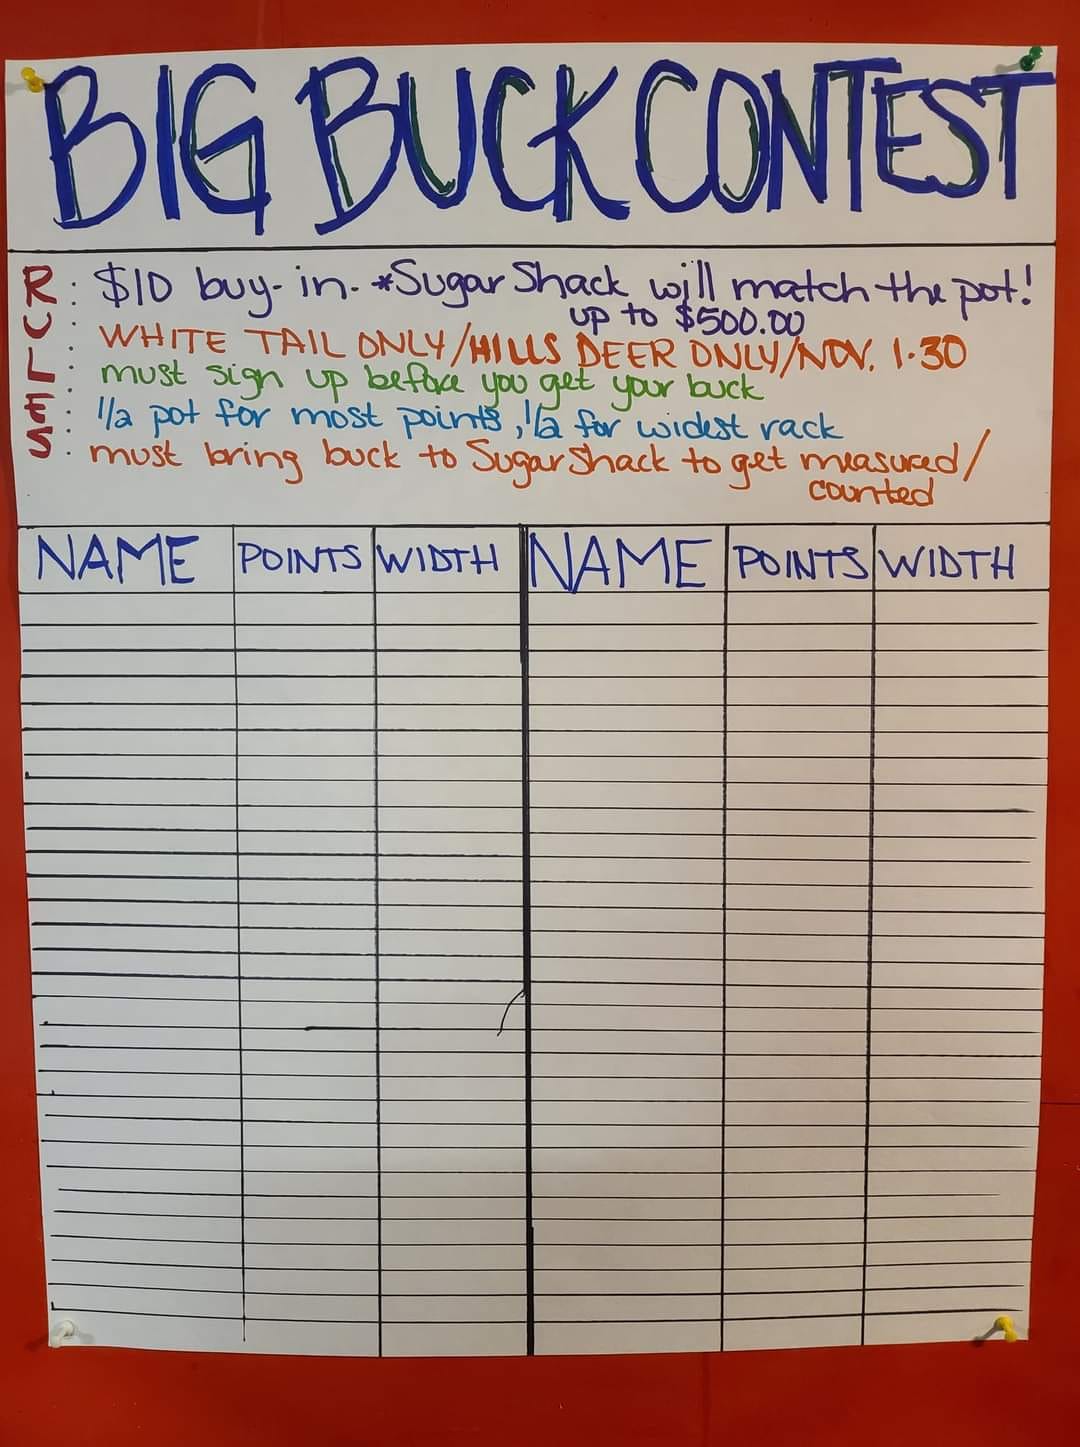 BIG BUCK CONTEST
RULES
: $10 buy-in. *Sugar Shack will match the pot!
up to $500.00
: WHITE TAIL ONLY/HILLS DEER ONLY/NOV. 1-30
: must sign up before you get your buck
: 1/2 pot for most points, 1/2 for widest rack
: must bring buck to Sugar Shack to get measured/
counted
NAME POINTS WIDTH NAME POINTS WIDTH